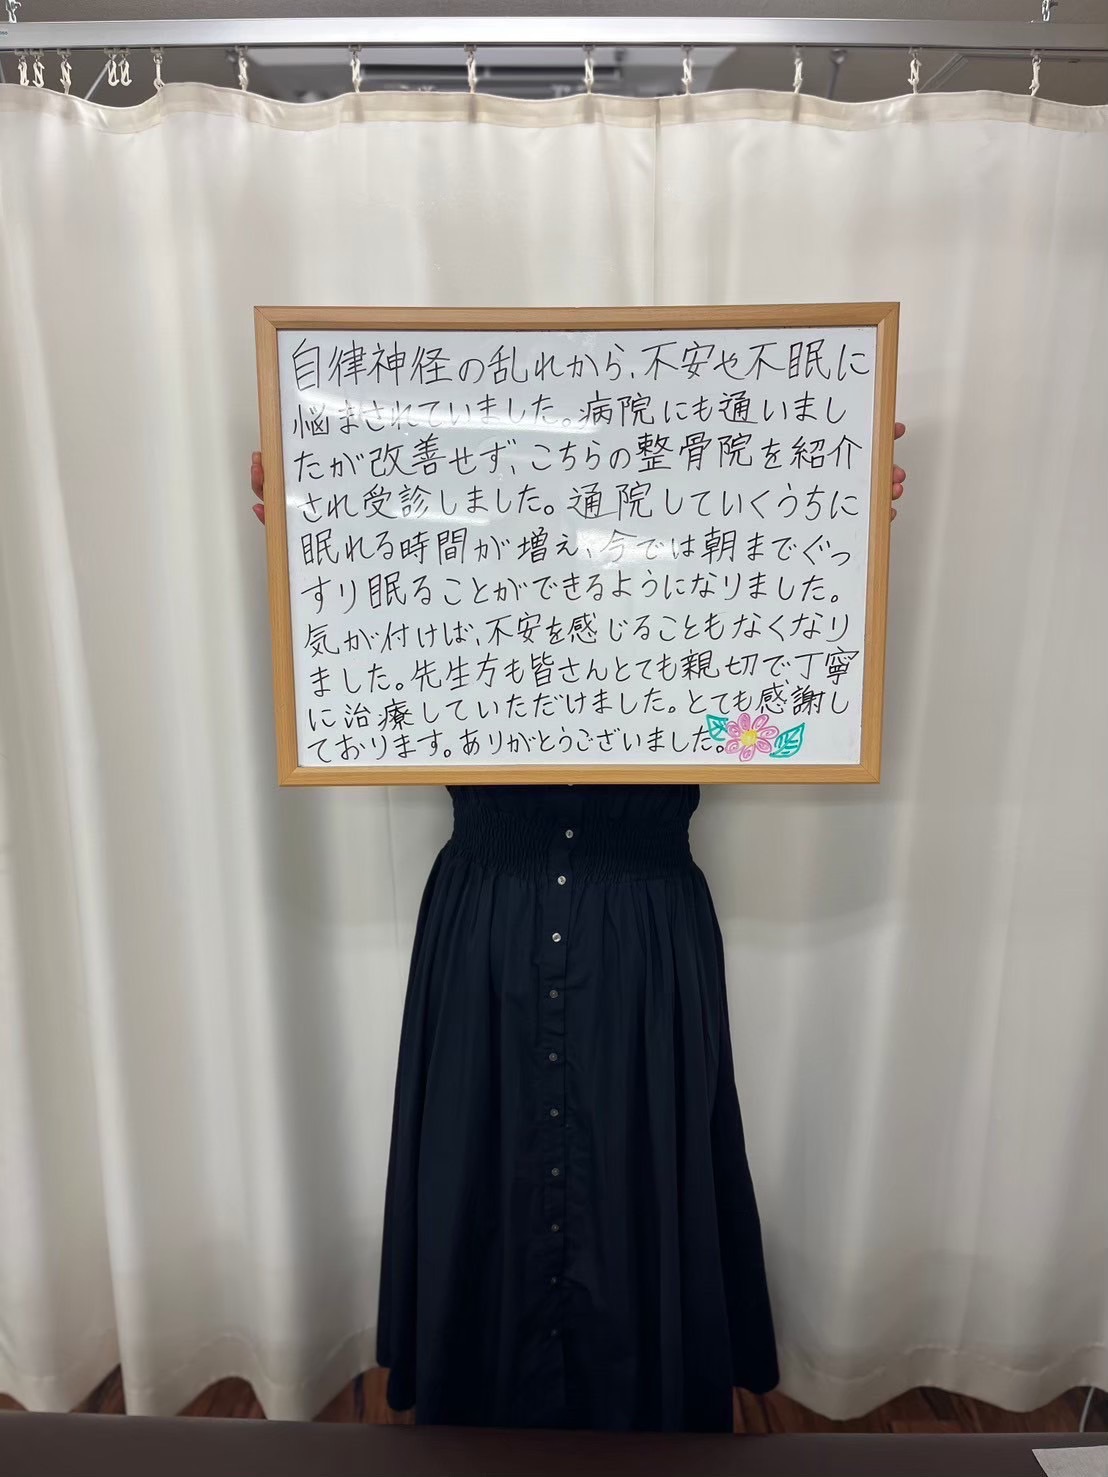 自律神経の乱れから、不安や不眠に
悩まされていました。病院にも通いまし
たが改善せず、こちらの整骨院を紹介
され受診しました。通院していくうちに
眠れる時間が増え、今では朝までぐっ
すり眠ることができるようになりました。
気が付けば、不安を感じることもなくなり
ました。先生方も皆さんとても親切で丁寧
に治療していただけました。とても感謝し
ております。ありがとうございました。